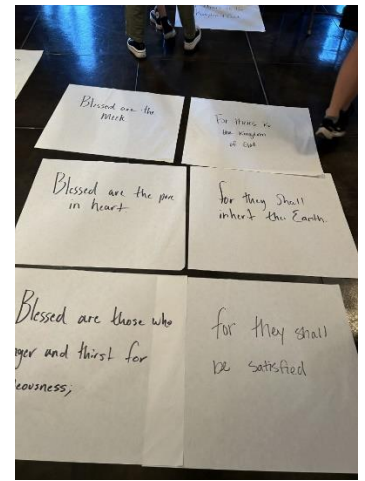 Blessed are the
Meek
For theirs is
the Kingdom
of God
Blessed are the pure
in heart
for they shall
inherit the Earth.
Blessed are those who
nger and thirst for
eousness;
for they shall
be satisfied